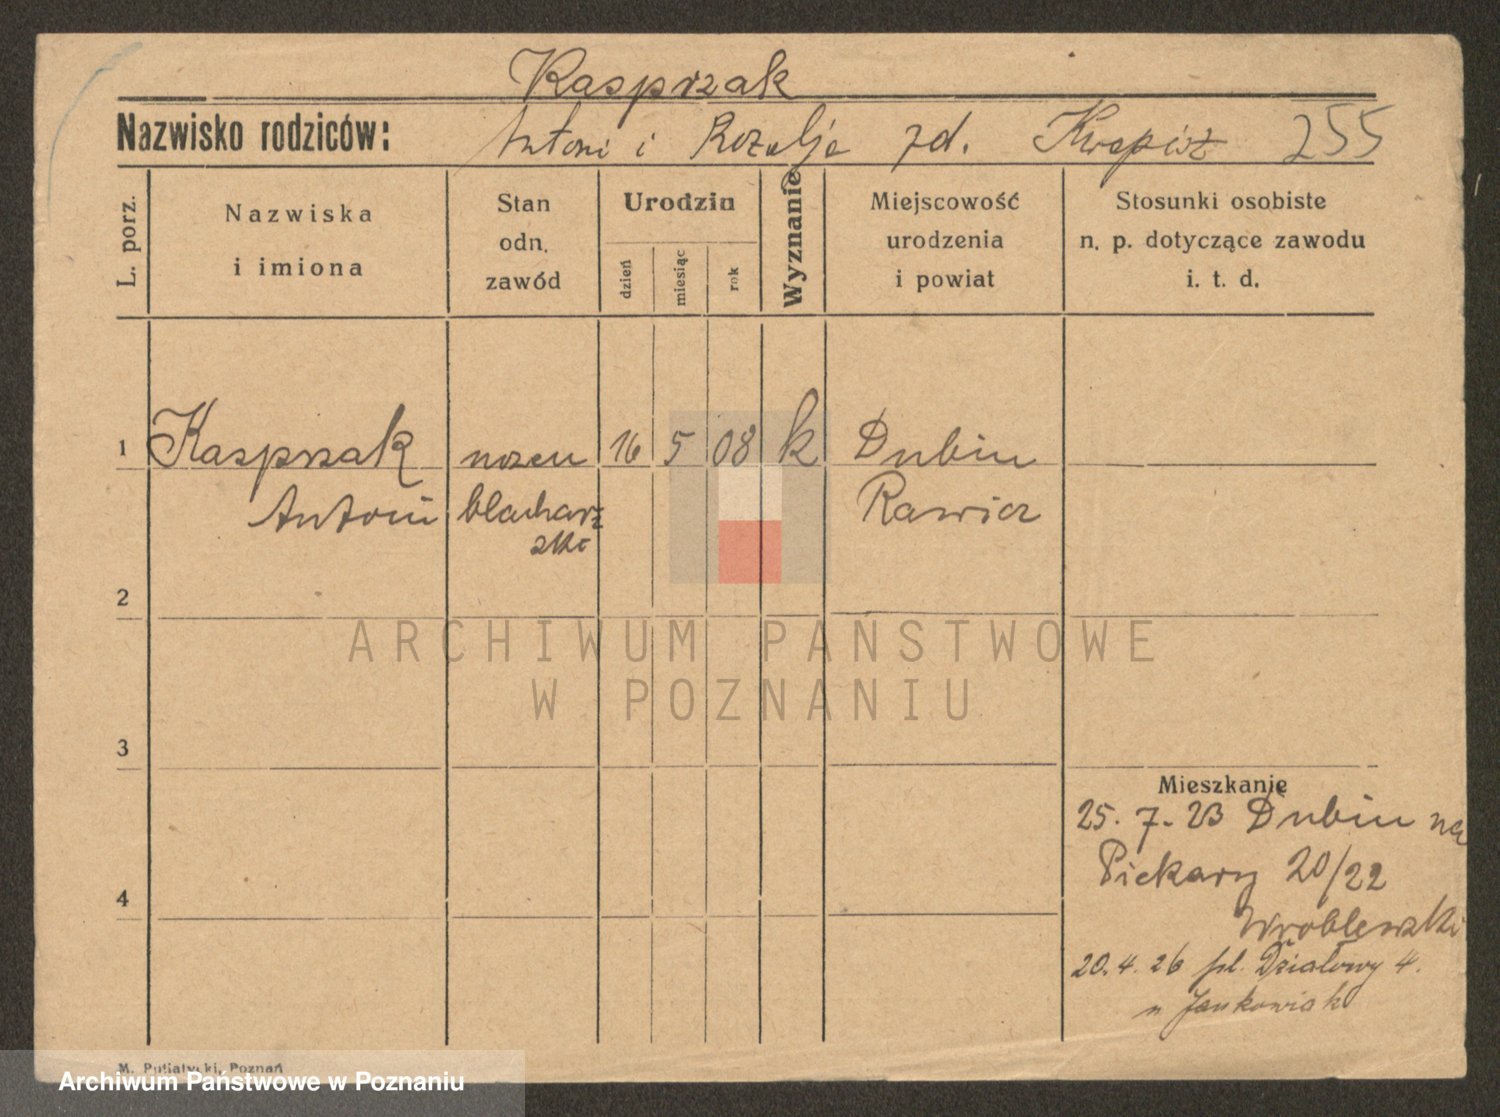 Kasprzak
Nazwisko rodziców: Antoni i Rozalja zd. Kwapisz 255
L. porz.
Nazwiska
i imiona
Stan
odn.
zawód
Urodzin
dzień
miesiąc
rok
Wyznanie
Miejscowość
urodzenia
i powiat
Stosunki osobiste
n. p. dotyczące zawodu
i. t. d.
1 Kasprzak uczeń 16 5 08 k Dubin
Antoni blacharz Rawicz
2
3
4
ARCHIWUM PAŃSTWOWE
W POZNANIU
Mieszkanie
25. 7. 23 Dubin na
Piekary 20/22
Wroblewski
20. 4. 26 pl. Działowy 4.
u Jankowiak
M. Putiatycki, Poznań
Archiwum Państwowe w Poznaniu